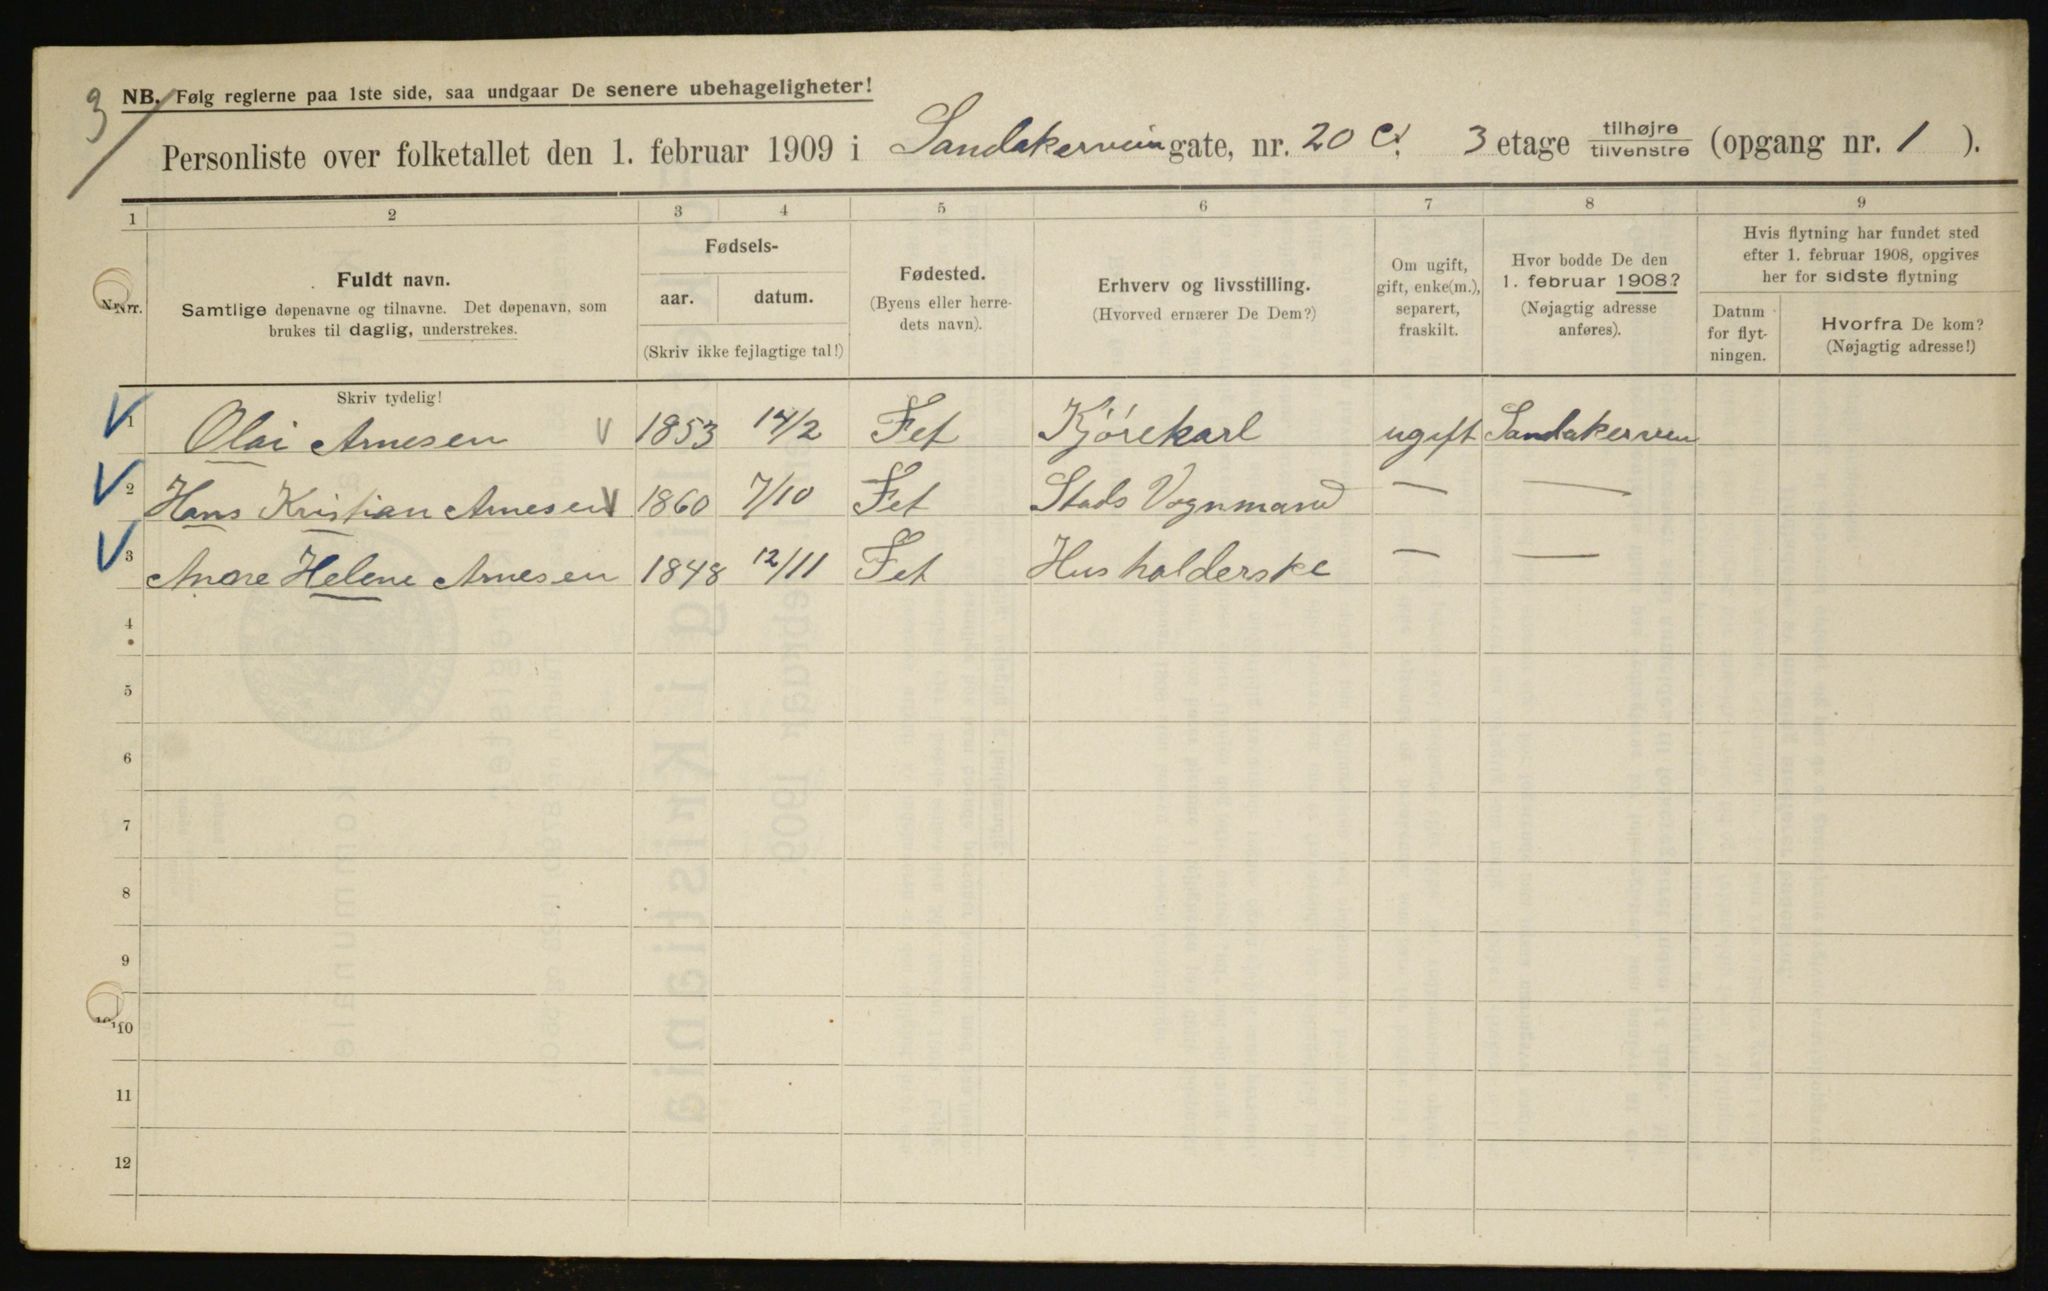 3
NB. Følg reglerne paa 1ste side, saa undgaar De senere ubehageligheter!
Personliste over folketallet den 1. februar 1909 i Sandakerveien gate, nr. 20 C. 3 etage tilhøjre tilvenstre (opgang nr. 1 ).
1 2 3 4 5 6 7 8 9
Nr.
Fuldt navn.
Samtlige døpenavne og tilnavne. Det døpenavn, som
brukes til daglig, understrekes.
Fødsels-
aar. datum.
(Skriv ikke fejlagtige tal!)
Fødested.
(Byens eller herre-
dets navn).
Erhverv og livsstilling.
(Hvorved ernærer De Dem?)
Om ugift,
gift, enke(m.),
separert,
fraskilt.
Hvor bodde De den
1. februar 1908?
(Nøjagtig adresse
anføres).
Hvis flytning har fundet sted
efter 1. februar 1908, opgives
her for sidste flytning
Datum
for flyt-
ningen.
Hvorfra De kom?
(Nøjagtig adresse!)
Skriv tydelig!
1 Olai Arnesen 1853 14/2 Fet Kjørekarl ugift Sandakerveien
2 Hans Kristian Arnesen 1860 7/10 Fet Stads Vognmand — —
3 Anne Helene Arnesen 1848 12/11 Fet Husholderske — —
4
5
6
7
8
9
10
11
12